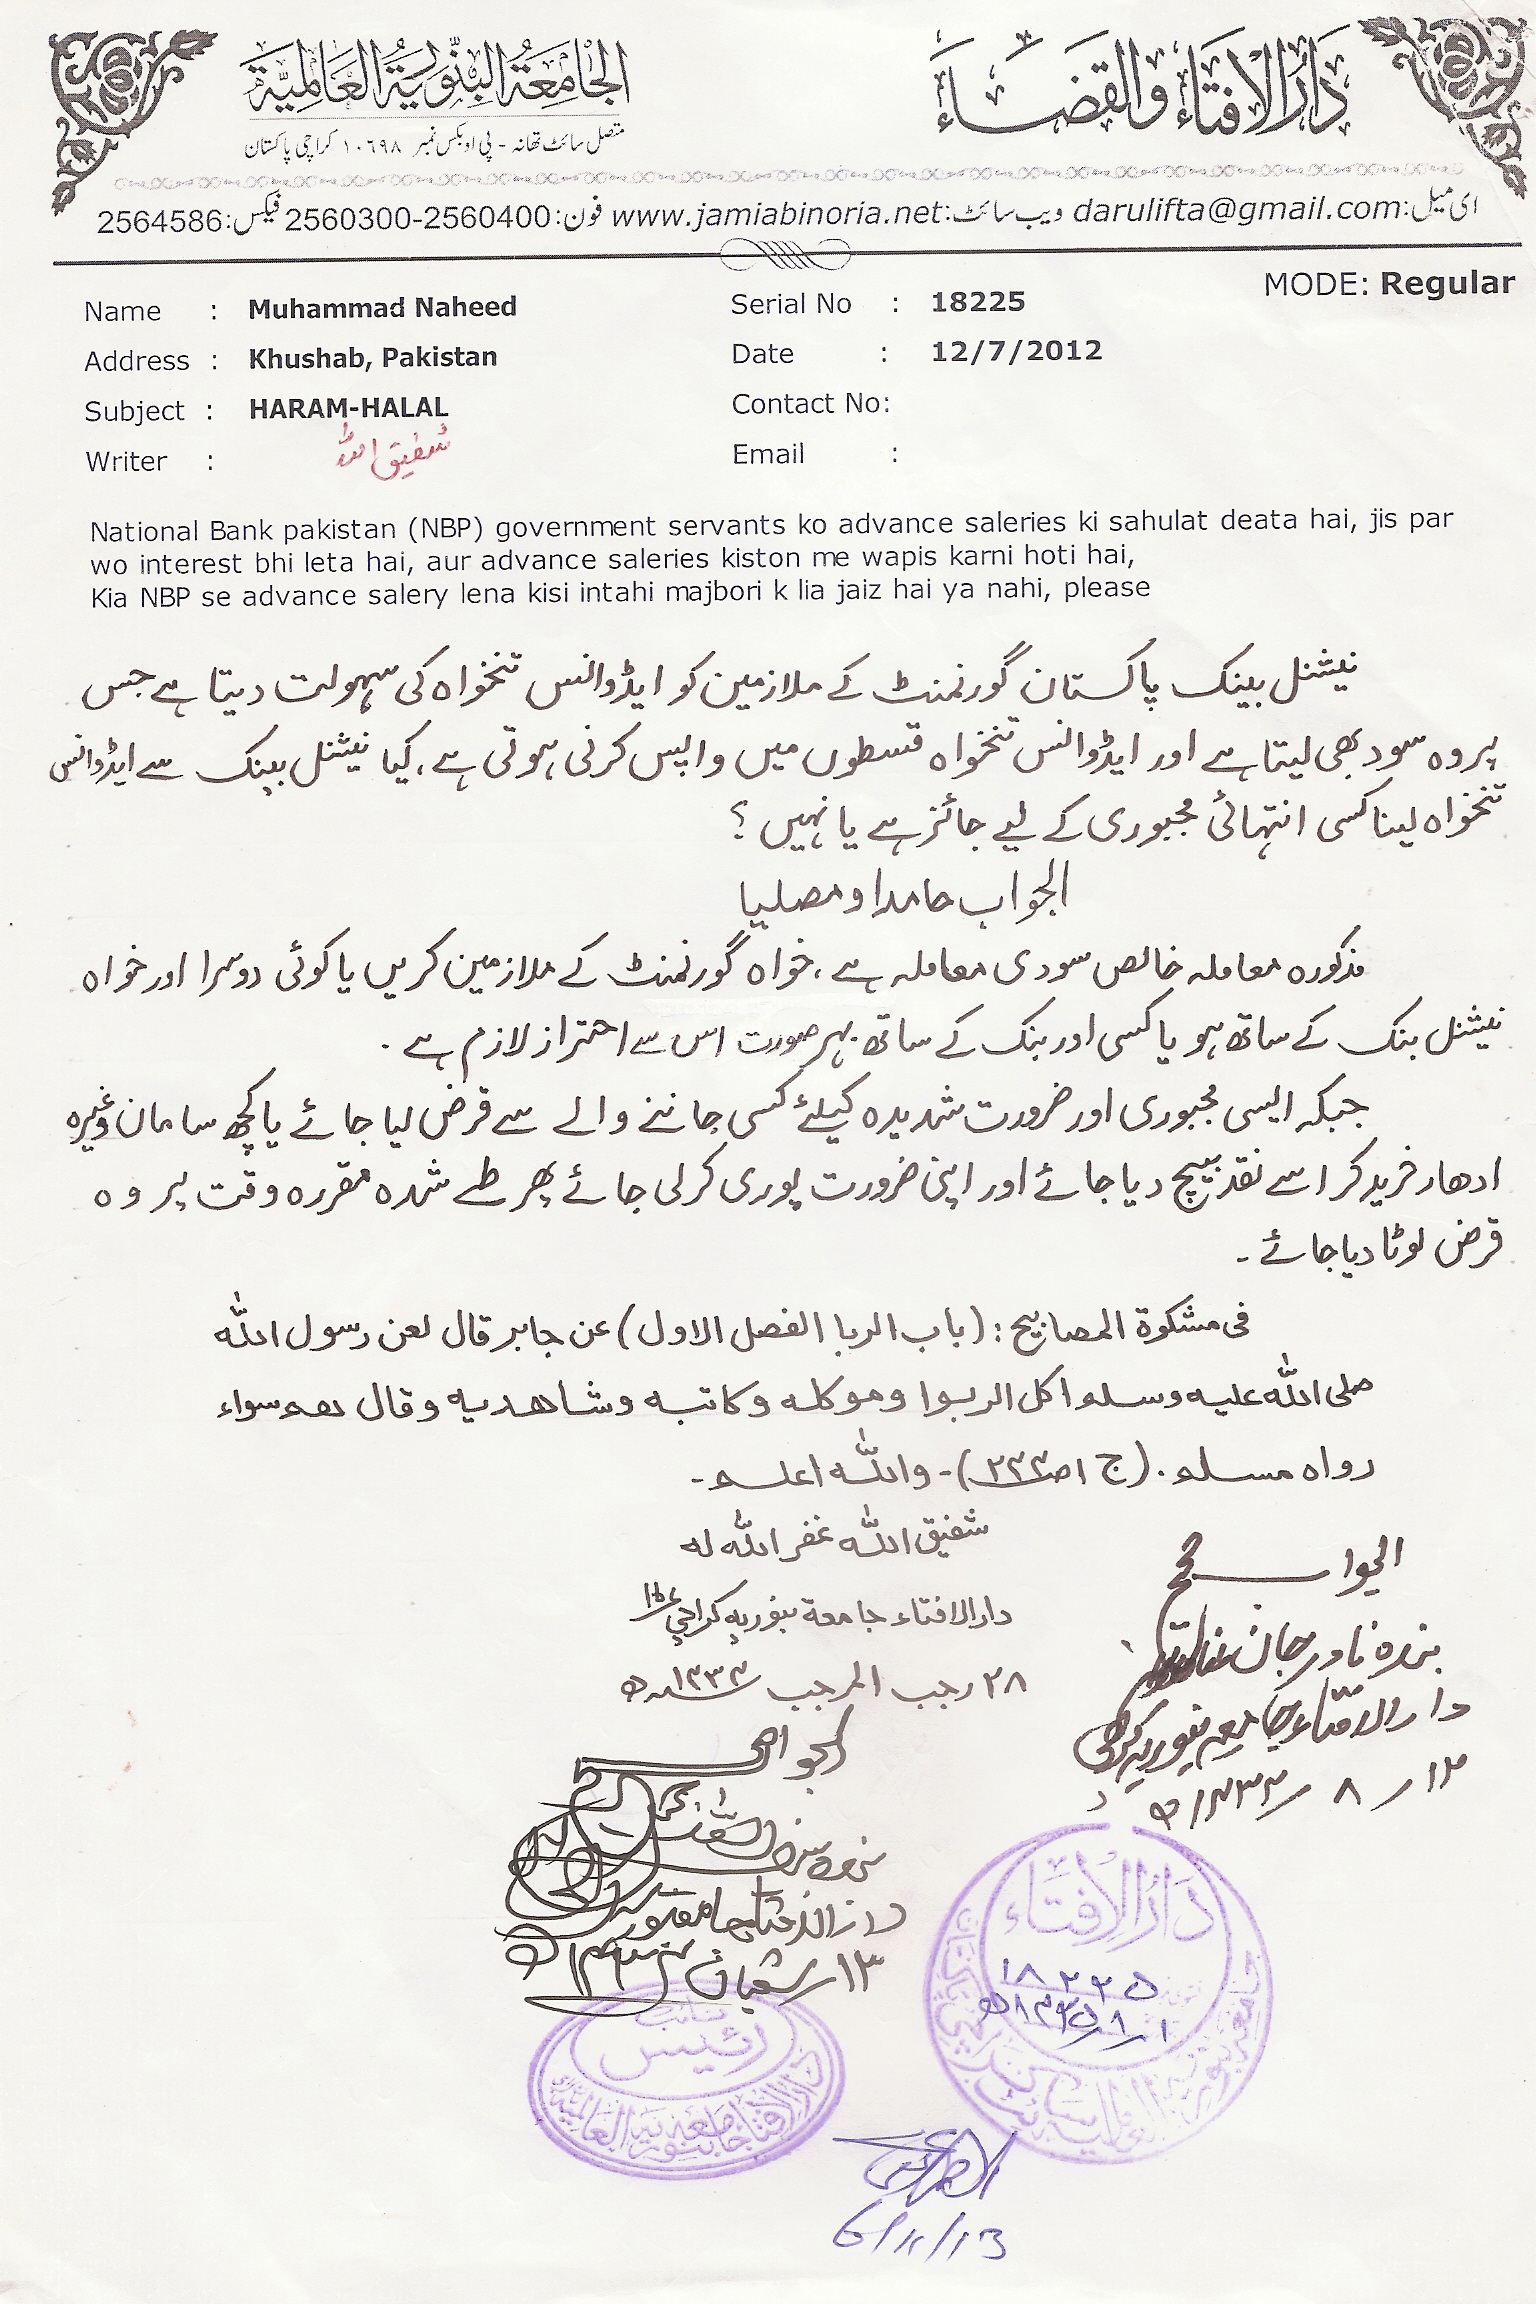 الجامعة البنورية العالمية
دار الافتاء والقضاء
متصل سائٹ تھانہ - پی او بکس نمبر ۱۰۶۹۸ کراچی پاکستان
ای میل:darulifta@gmail.com ویب سائٹ:www.jamiabinoria.net فون:2560300-2560400 فیکس:2564586
MODE: Regular
Name : Muhammad Naheed
Serial No : 18225
Address : Khushab, Pakistan
Date : 12/7/2012
Subject : HARAM-HALAL
Contact No:
Writer : شفیق اللہ
Email :
National Bank pakistan (NBP) government servants ko advance saleries ki sahulat deata hai, jis par
wo interest bhi leta hai, aur advance saleries kiston me wapis karni hoti hai,
Kia NBP se advance salery lena kisi intahi majbori k lia jaiz hai ya nahi, please
نیشنل بینک پاکستان گورنمنٹ کے ملازمین کو ایڈوانس تنخواہ کی سہولت دیتا ہے جس
پر وہ سود بھی لیتا ہے اور ایڈوانس تنخواہ قسطوں میں واپس کرنی ہوتی ہے، کیا نیشنل بینک سے ایڈوانس
تنخواہ لینا کسی انتہائی مجبوری کے لیے جائز ہے یا نہیں ؟
الجواب حامدا و مصلیا
مذکورہ معاملہ خالص سودی معاملہ ہے، خواہ گورنمنٹ کے ملازمین کریں یا کوئی دوسرا اور خواہ
نیشنل بنک کے ساتھ ہو یا کسی اور بنک کے ساتھ بہر صورت اس سے احتراز لازم ہے ۔
جبکہ ایسی مجبوری اور ضرورت شدیدہ کیلئے کسی جاننے والے سے قرض لیا جائے یا کچھ سامان وغیرہ
ادھار خرید کر اسے نقد بیچ دیا جائے اور اپنی ضرورت پوری کرلی جائے پھر طے شدہ مقررہ وقت پر وہ
قرض لوٹا دیا جائے ۔
فی مشکوة المصابیح : (باب الربا الفصل الاول) عن جابر قال لعن رسول اللہ
صلی اللہ علیہ وسلم اکل الربوا وموکله وکاتبه وشاھدیه وقال ھم سواء
رواہ مسلم . (ج ۱ ص ۲۴۳) - واللہ اعلم ۔
شفیق اللہ غفر اللہ له
دار الافتاء جامعة بنوریه کراچی
۲۸ رجب المرجب ۱۴۳۳ھ
الجواب صحیح
بندہ نادر جان
دار الافتاء جامعہ بنوریہ کراچی
۱۲ / ۸ / ۱۴۳۳ھ
الجواب صحیح
دار الافتاء جامعہ بنوریہ
۱۳ / شعبان ۱۴۳۳ھ
دار الافتاء
۱۸۲۲۵
نائب
رئیس
دار الافتا جامعہ بنوریہ العالمیہ
6/11/13